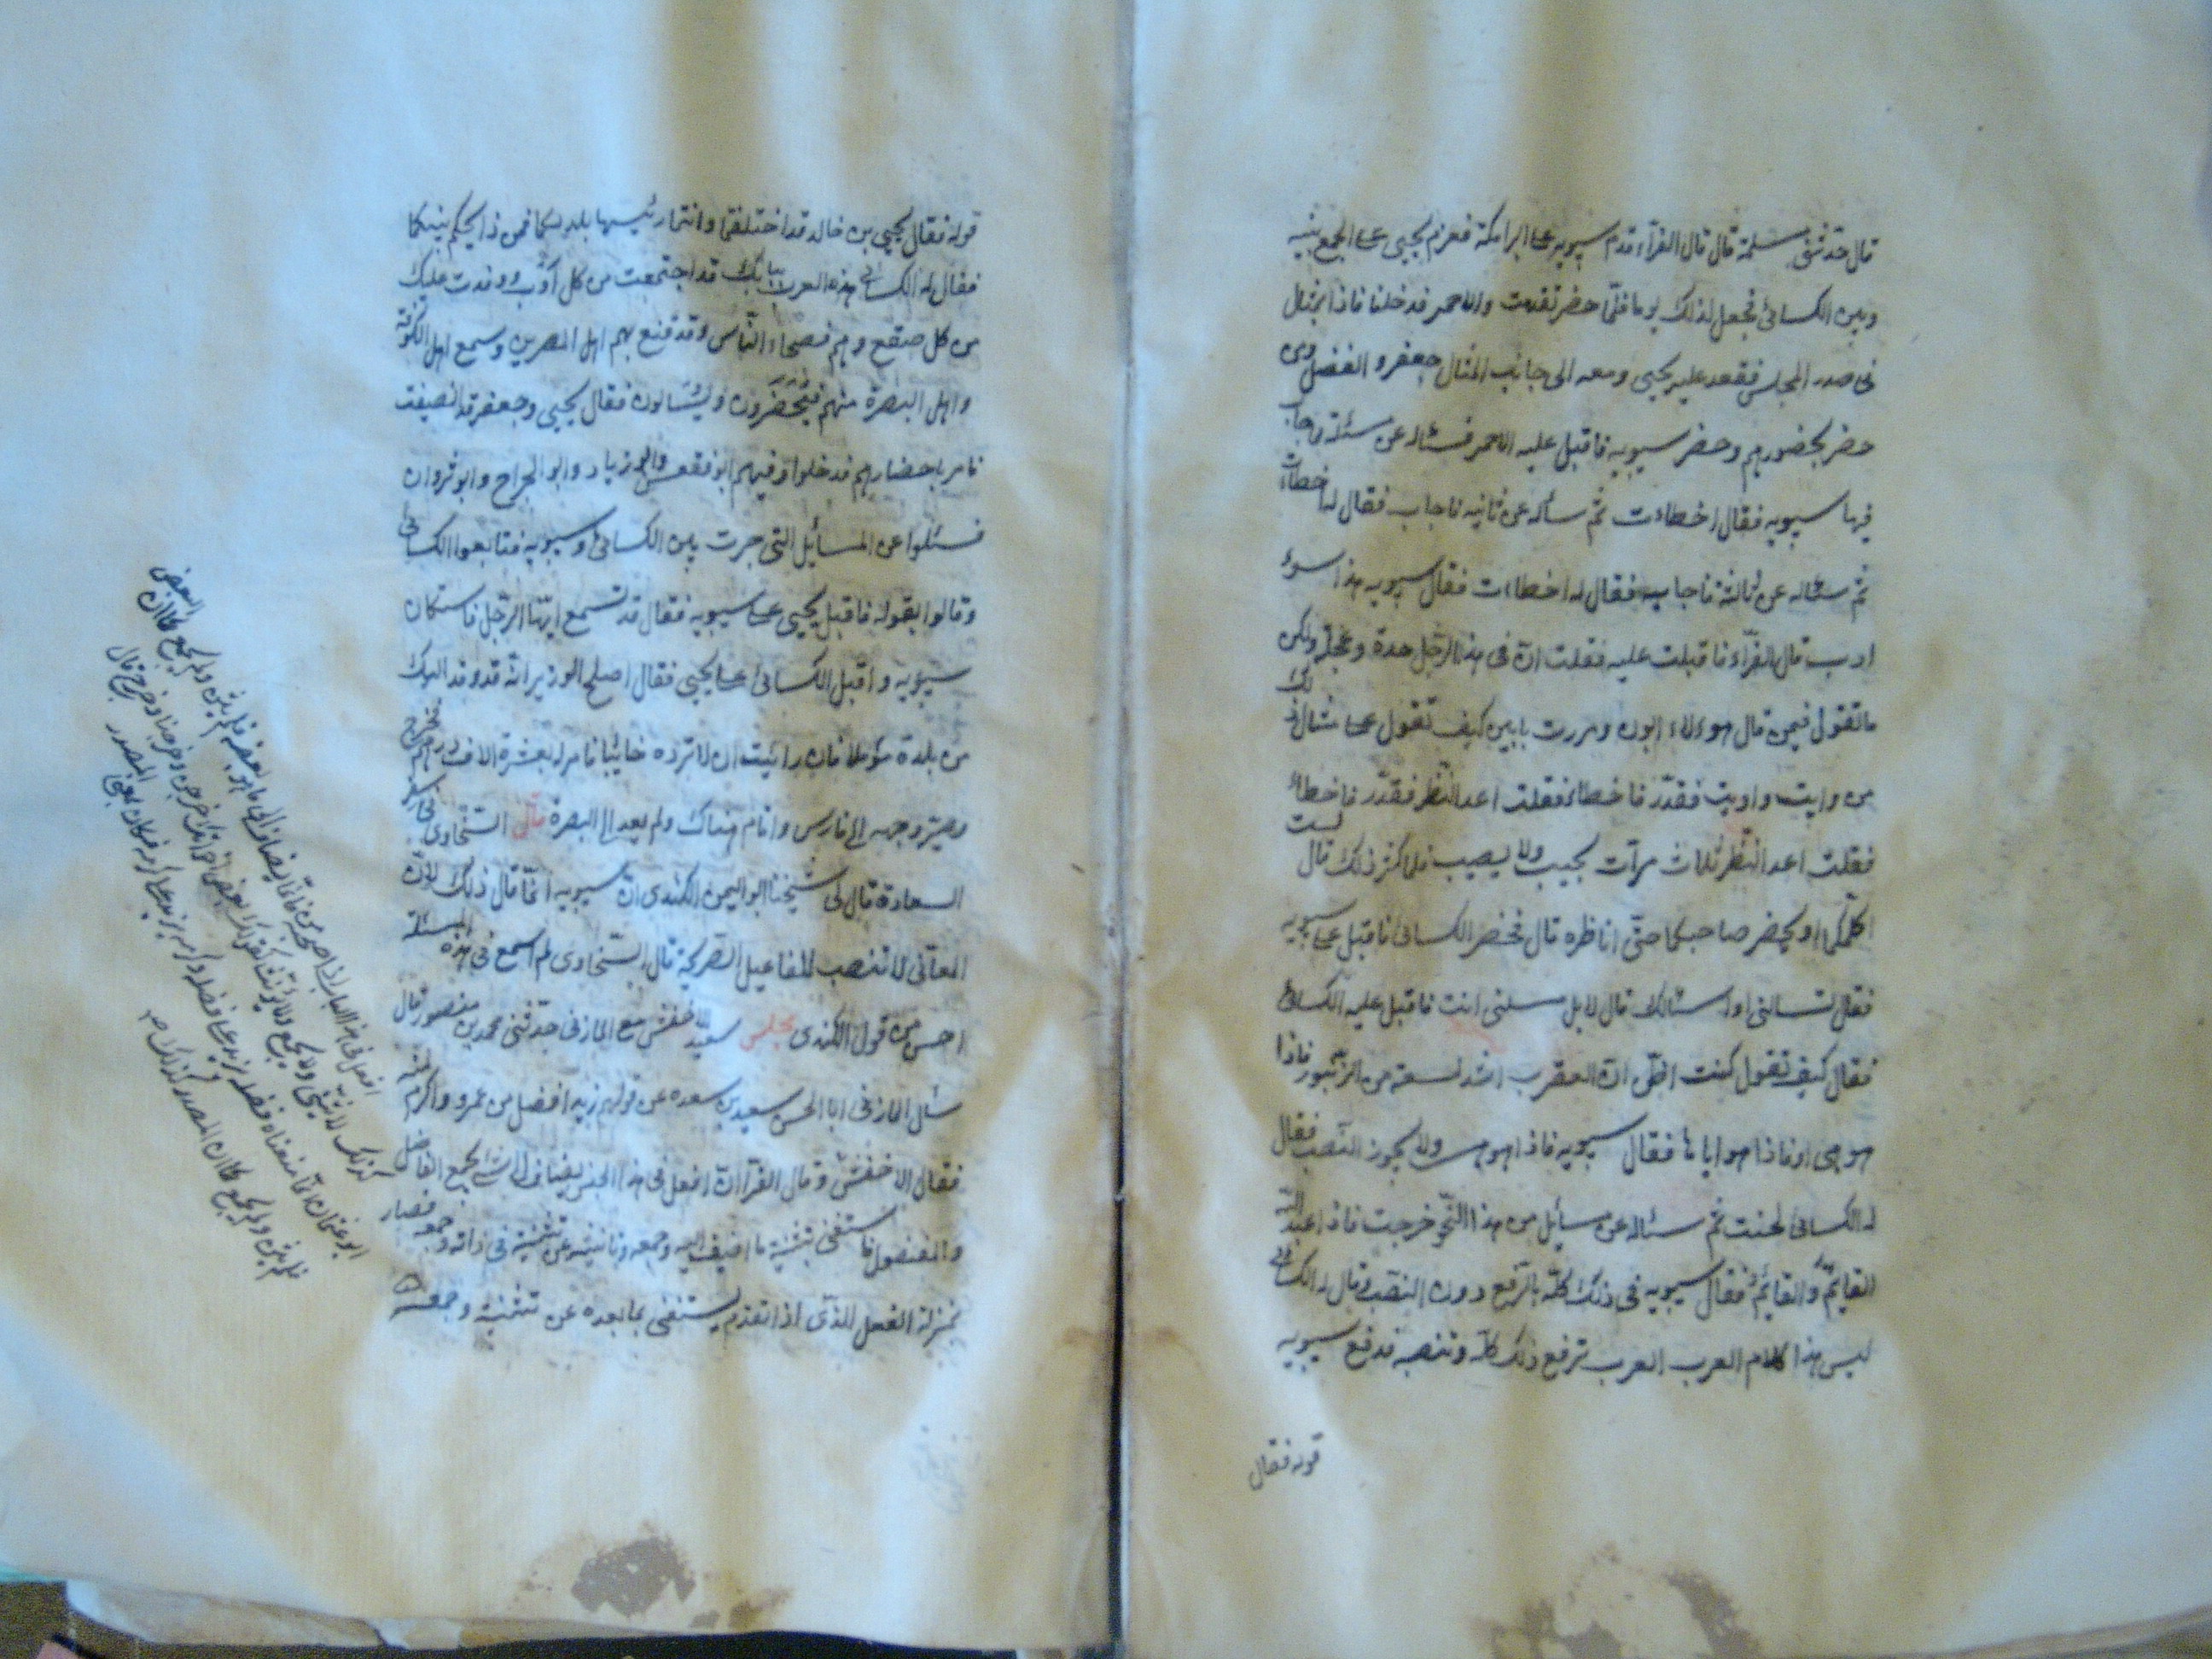 قال حدثنى سلمة قال قال الفرآء قدم سيبويه على البرامكة فعزم يحيى على الجمع بينه
وبين الكسائى فجعل لذلك يوما فلمّا حضر تقدمت والاحمر فدخلنا فاذا بمثال
فى صدر المجلس فقعد عليه يحيى ومعه الى جانب المثال جعفر و الفضل ومن
حضر بحضورهم وحضر سيبويه فاقبل عليه الاحمر فسئاله عن مسئلة فاجاب
فيها سيبويه فقال اخطاءت ثم سأله عن ثانيه فاجاب فقال له اخطاءت
ثم سئاله عن ثالثة فاجاب فقال له اخطاات فقال سيبويه هذا سوء
ادب قال الفرّاء فاقبلت عليه فقلت انّ فى هذا الرجل حدة وعجلة ولكن
ماتقول فيمن قال هوءلاء ابون ومررت بابين كيف تقول على مثال ذلك
من وايت واويت فقدّر فاخطا فقلت اعد النظر فقدّر فاخطا
فقلت اعد النظر ثلاث مرآت يجيب ولا يصيب فلما كثر ذلك قال لست
اكلّمكما او يحضر صاحبكما حتّى اناظره قال فحضر الكسائى فاقبل على سيبويه
فقال تسالنى او اسئالك قال لا بل سلنى انت فاقبل عليه الكسائى
فقال كيف تقول كنت اظنّ انّ العقرب اشد لسعة من الزنبور فاذا
هو هى او فاذا هو اياها فقال سيبويه فاذا هو هى ولا يجوز النصب فقال
له الكسائى لحنت ثم سئاله عن مسايل من هذا النحو خرجت فاذا عبد اللّه
القايمُ والقائمَ فقال سيبويه فى ذلك كلّه بالرّفع دون النصب فقال له الكسائى
ليس هذا كلام العرب العرب ترفع ذلك كلّه وتنصبه فدفع سيبويه
قوله فقال
قوله فقال يحيى بن خالد قد اختلفتما وانتما رئيسا بلديكما فمن ذا يحكم بينكما
فقال له الكسائى هذه العرب ببابك قد اجتمعت من كل اوب ووفدت عليك
من كل صقع وهم فصحاء النّاس وقد قنع بهم اهل المصرين وسمع اهل الكوفة
واهل البصرة منهم فيحضرون ويسئالون فقال يحيى وجعفر قد انصفت
فامر باحضارهم فدخلوا وفيهم ابو فقعس وابو زياد وابو الجراح وابو ثروان
فسئلوا عن المسايل التى جرت بين الكسائى وسيبويه فتابعوا الكسائى
وقالوا بقوله فاقبل يحيى على سيبويه فقال قد تسمع ايها الرّجل فاستكان
سيبويه واقبل الكسائى على يحيى فقال اصلح الوزير انّه قد وفد اليك
من بلدة مؤملا فان رائيت ان لا ترده خائبا فامر له بعشرة الاف درهم فخرج
وصيّر وجهه الى فارس واقام هناك ولم يعد الى البصرة قال السّخاوى فى سفر
السعادة قال لى شيخنا ابو اليمن الكندى انّ سيبويه انّما قال ذلك لانّ
المعانى لا تنصب المفاعيل الصّريحة قال السّخاوى لم اسمع فى هذه المسئلة
احسن من قول الكندى مجلس سعيد الاخفش مع المازنى حدثنى محمد بن منصور قال
سئل المازنى ابا الحسن سعيد بن مسعده عن قولهم زيد افضل من عمرو واكرم منه
فقال الاخفش وقال الفرّآ ان افعل فى هذا الجنس يضاف الى شئ يجمع الفاضل
والمفضول فاستغنى بتثنية ما اضيف اليه وجمعه وتانيثه عن تثنيته فى ذاته وجمعه فصار
بمنزلة الفعل الذى اذا تقدم يستغنى بما بعده عن تثنيته وجمعه